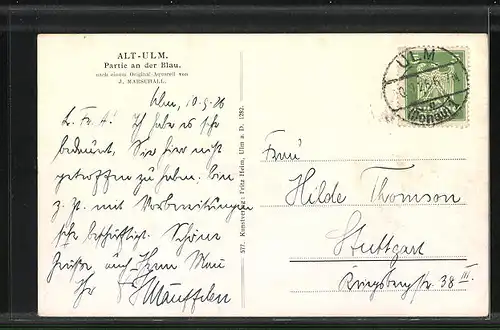 ALT-ULM.
Partie an der Blau.
nach einem Original-Aquarell von
J. MARSCHALL.
ULM
(Donau)
Ulm, 10.9.26
L. Fr. H.! Ich habe es sehr
bedauert, Sie hier nicht
getroffen zu haben. bin
z. Zt. mit Vorbereitungen
sehr beschäftigt. Schöne
Grüsse, auch Ihrem
Ihr
577. Kunstverlag: Fritz Heim, Ulm a. D. 1292.
Frau
Hilde Thomson
Stuttgart
Kriegsbergstr. 38 III.